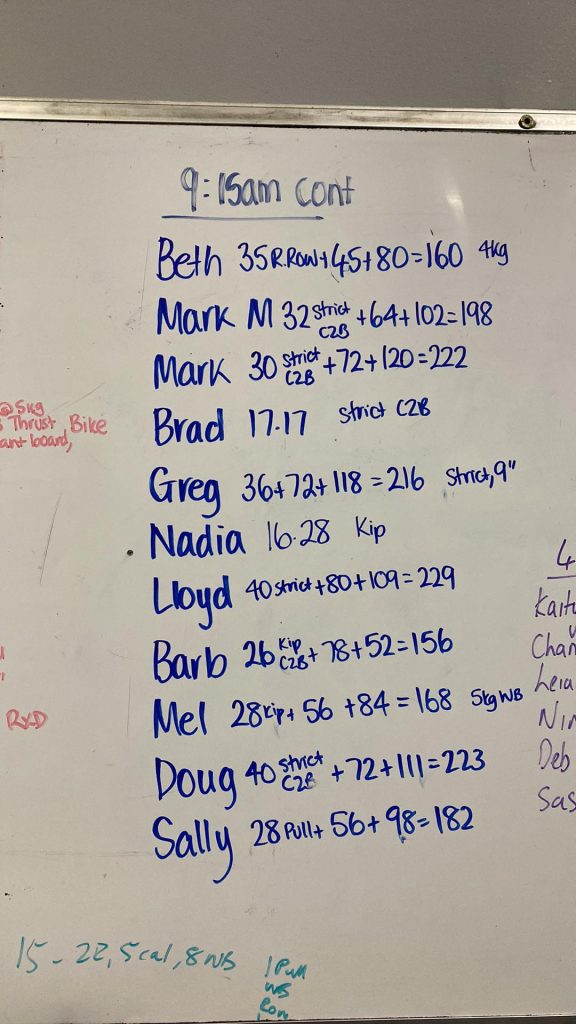 9:15am cont
Beth 35 R.Row + 45 + 80 = 160 4kg
Mark M 32 strict C2B + 64 + 102 = 198
Mark 30 strict C2B + 72 + 120 = 222
@5kg
Thrust, Bike
board,
Brad 17.17 strict C2B
Greg 36 + 72 + 118 = 216 strict, 9"
Nadia 16.28 Kip
Lloyd 40 strict + 80 + 109 = 229
4
Barb 26 Kip C2B + 78 + 52 = 156
Mel 28 Kip + 56 + 84 = 168 5kg WB
RXD
Doug 40 strict C2B + 72 + 111 = 223
Deb
Sally 28 Pull + 56 + 98 = 182
Sas
15 - 22, 5 cal, 8 WB
1 Pull
WB
Row